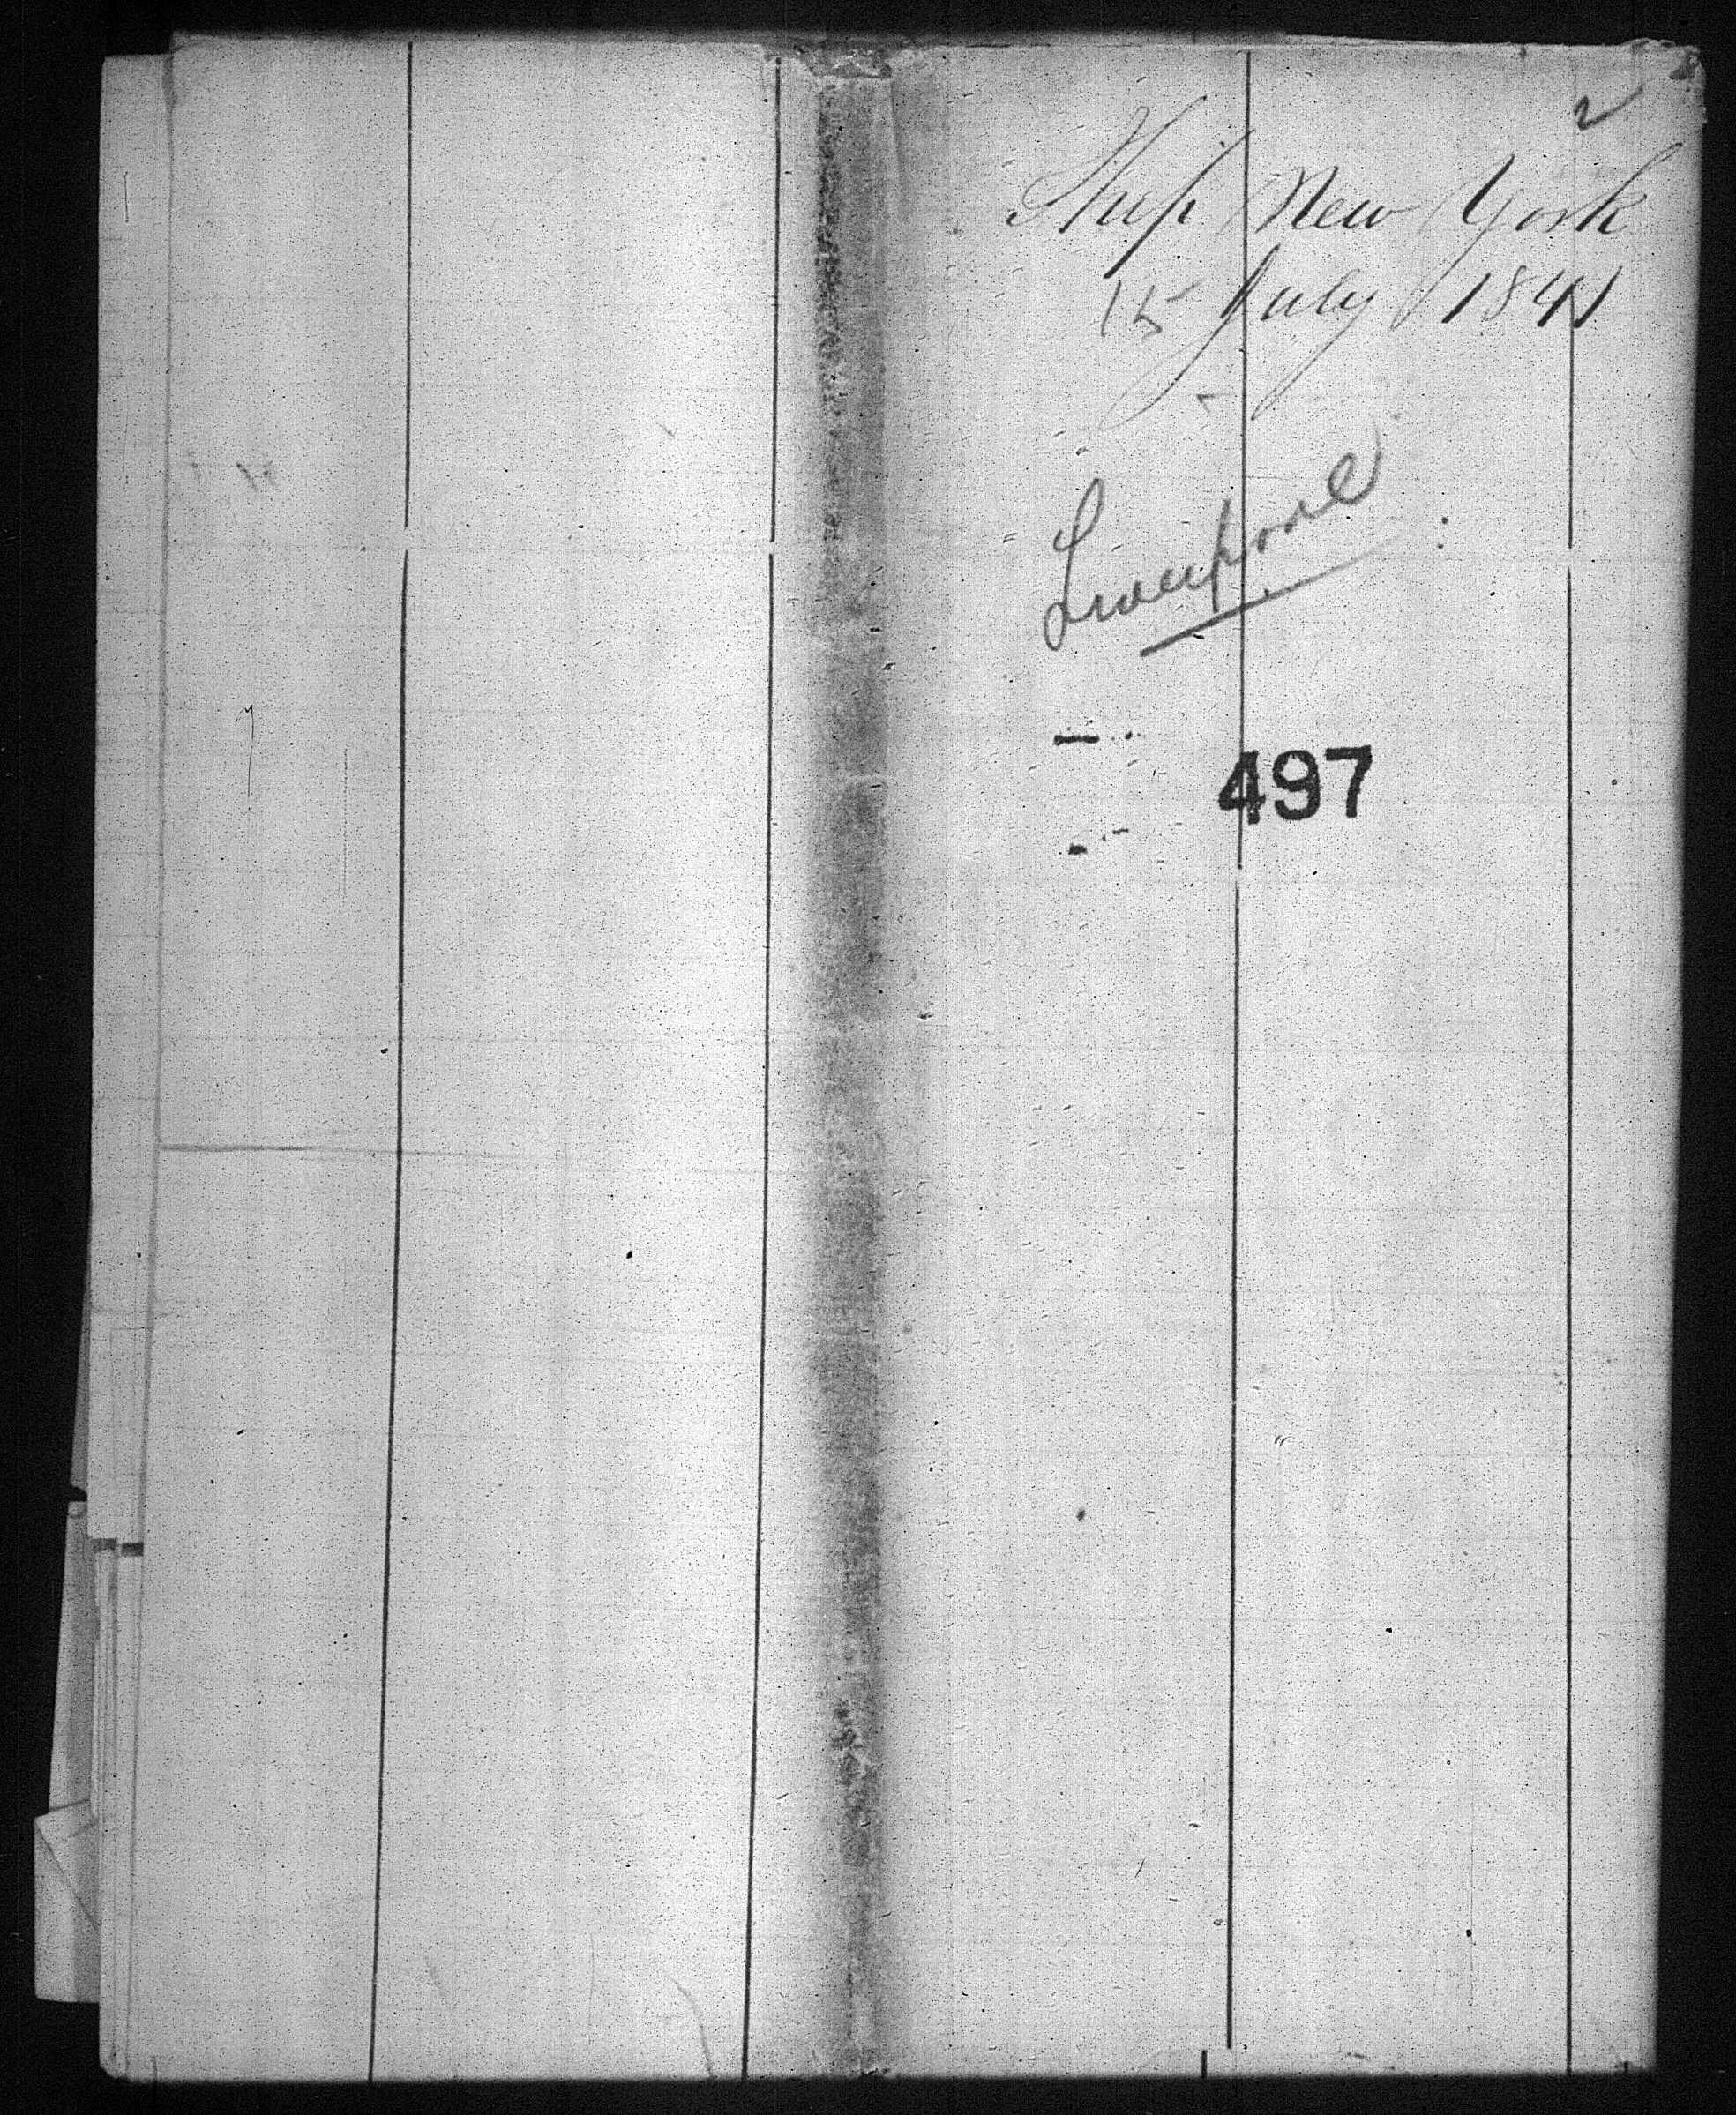 Ship New York
15 July 1841
Liverpool
497